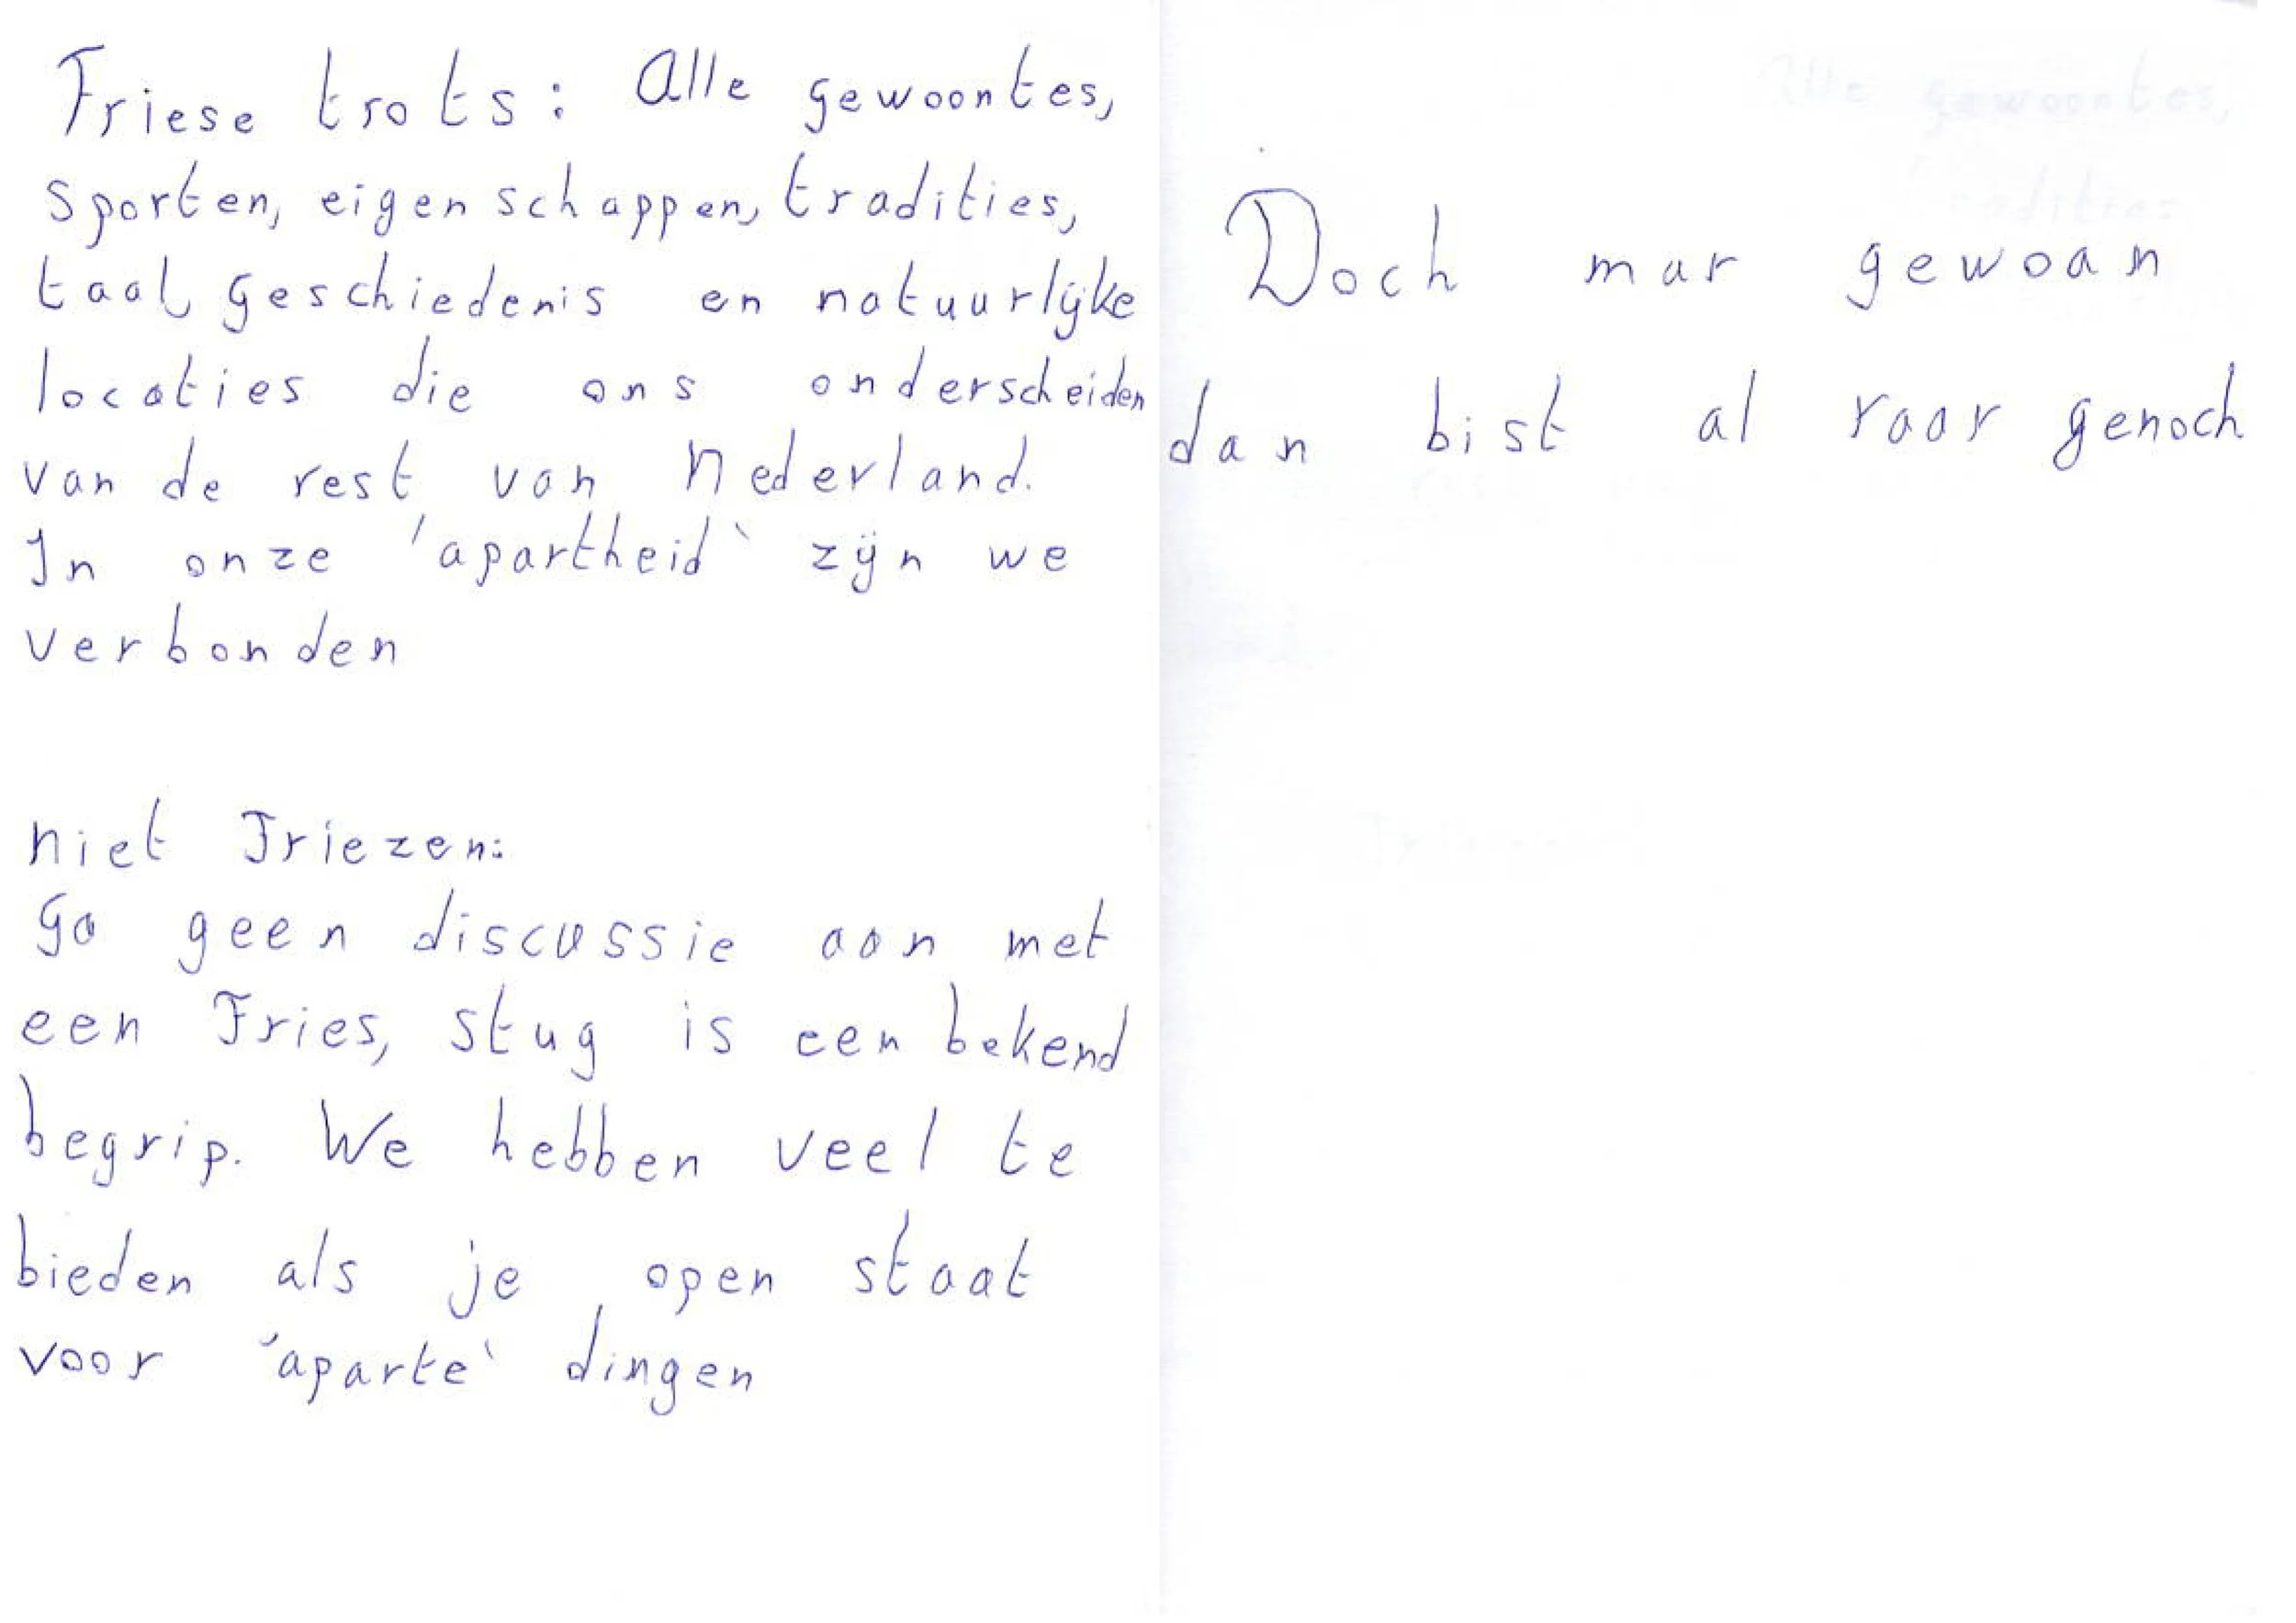 Friese trots: Alle gewoontes,
sporten, eigenschappen, tradities,
taal, geschiedenis en natuurlijke
locaties die ons onderscheiden
van de rest van Nederland.
In onze 'apartheid' zijn we
verbonden
niet Friezen:
Ga geen discussie aan met
een Fries, stug is een bekend
begrip. We hebben veel te
bieden als je open staat
voor 'aparte' dingen
Doch mar gewoan
dan bist al raar genoch